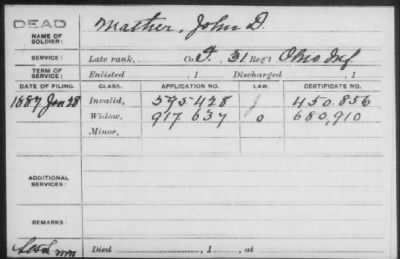 DEAD
NAME OF SOLDIER: Mather, John D.
SERVICE: Late rank, Co. F. 31 Reg't Ohio Inf
TERM OF SERVICE: Enlisted , 1 Discharged , 1
DATE OF FILING. CLASS. APPLICATION NO. LAW. CERTIFICATE NO.
1887 Jan 28 Invalid, 595428 J 450.856
Widow, 917637 O 680,910
Minor,
ADDITIONAL SERVICES:
REMARKS:
Died , 1 , at